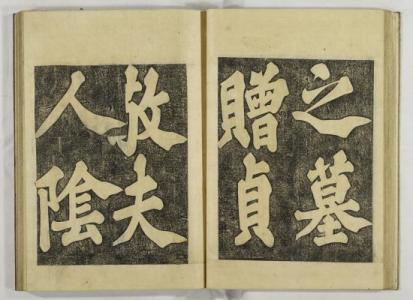 之墓
贈貞
敬夫
人陰